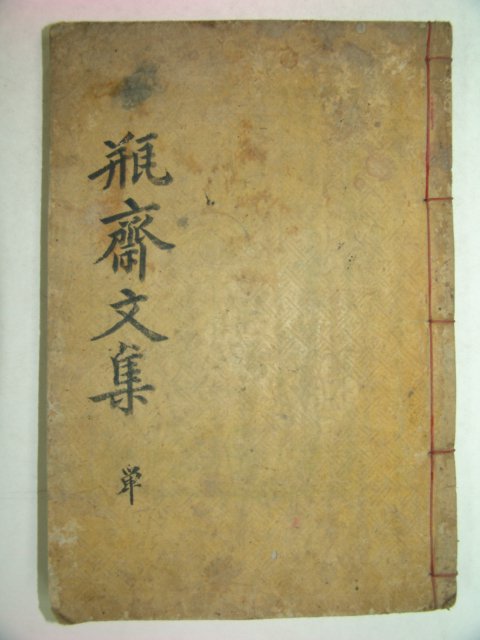 瓶齋文集
单